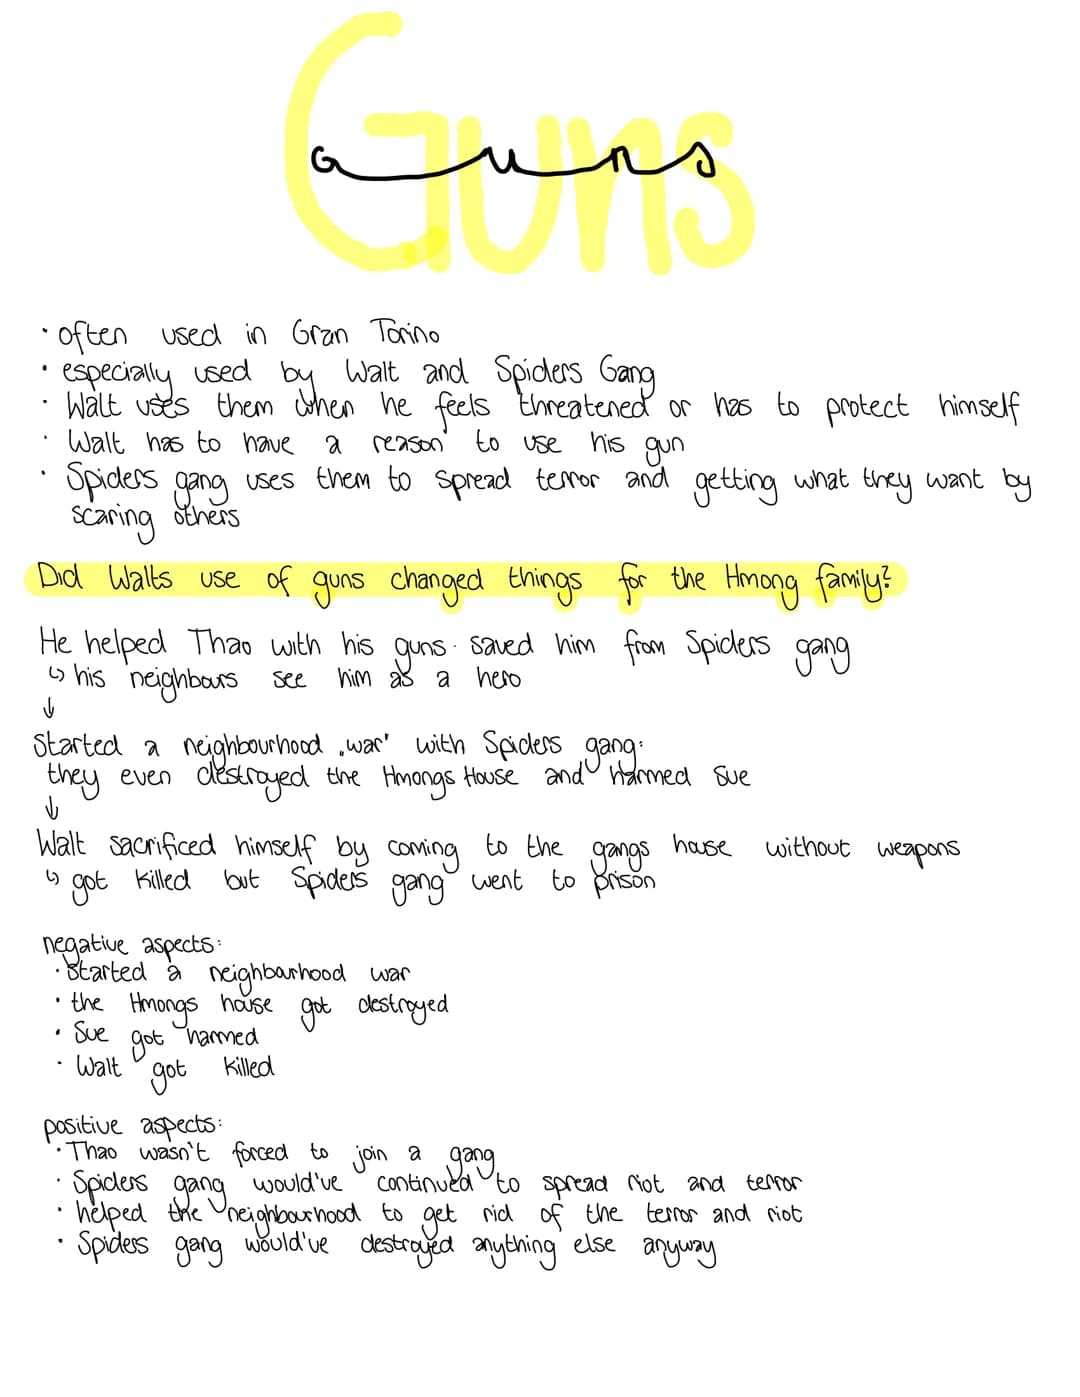 Guns
Guns
· often used in Gran Torino
· especially used by Walt and Spiders Gang
· Walt uses them when he feels threatened or has to protect himself
· Walt has to have a reason to use his gun
· Spiders gang uses them to spread terror and getting what they want by
scaring others
Did Walts use of guns changed things for the Hmong family?
He helped Thao with his guns. saved him from Spiders gang
↳ his neighbours see him as a hero
↓
Started a neighbourhood „war' with Spiders gang:
they even destroyed the Hmongs House and harmed Sue
↓
Walt sacrificed himself by coming to the gangs house without weapons
↳ got killed but Spiders gang went to prison
negative aspects:
· Started a neighbourhood war
· the Hmongs house got destroyed
· Sue got harmed
· Walt got killed
positive aspects:
· Thao wasn't forced to join a gang
· Spiders gang would've continued to spread riot and terror
· helped the neighbourhood to get rid of the terror and riot
· Spiders gang would've destroyed anything else anyway